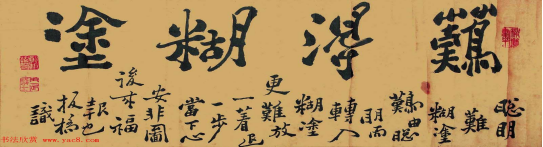 難得糊塗
聰明
難
糊塗
難由聰
明而
轉入
糊塗
更難放
一着退
一步
當下心
安非圖
後來福
報也
板橋
識
书法欣赏 www.yac8.com